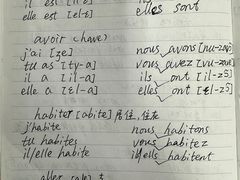 il est [il-ɛ] ils sont
elle est [ɛl-ɛ] elles sont
avoir (have)
j'ai [ʒe] nous avons [nu-zavɔ̃]
tu as [ty-a] vous avez [vu-zave]
il a [il-a] ils ont [il-zɔ̃]
elle a [ɛl-a] elles ont [ɛl-zɔ̃]
habiter [abite] 居住, 住在
j'habite nous habitons
tu habites vous habitez
il/elle habite ils/elles habitent
aller